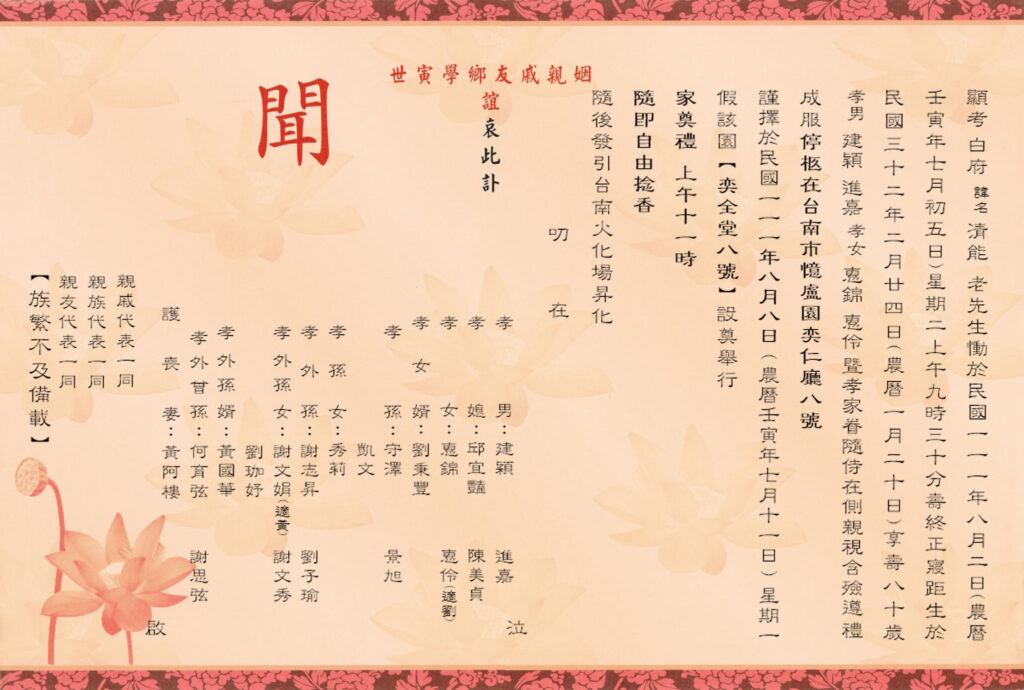 顯考 白府 諱名 清能 老先生慟於民國一一一年八月二日（農曆
壬寅年七月初五日）星期二上午九時三十分壽終正寢距生於
民國三十二年二月廿四日（農曆一月二十日）享壽八十歲
孝男 建穎 進嘉 孝女 憲錦 憲伶 暨孝家眷隨侍在側親視含殮遵禮
成服停柩在台南市憶盧園奕仁廳八號
謹擇於民國一一一年八月八日（農曆壬寅年七月十一日）星期一
假該園【奕全堂八號】設奠舉行
家奠禮 上午十一時
隨即自由捻香
隨後發引台南火化場昇化
叨在
世寅學鄉友戚親姻
誼哀此訃
聞
孝男：建穎 進嘉
孝媳：邱宜豔 陳美貞
孝女：憲錦 憲伶（適劉）
孝女婿：劉秉豐
孝孫：守澤 景旭
凱文
孝孫女：秀莉
孝外孫：謝志昇 劉子瑜
孝外孫女：謝文娟（適黃） 謝文秀
劉珈妤
孝外孫婿：黃國華
孝外曾孫：何育弦 謝思弦
護喪妻：黃阿樓
泣啟
親戚代表一同
親族代表一同
親友代表一同
【族繁不及備載】